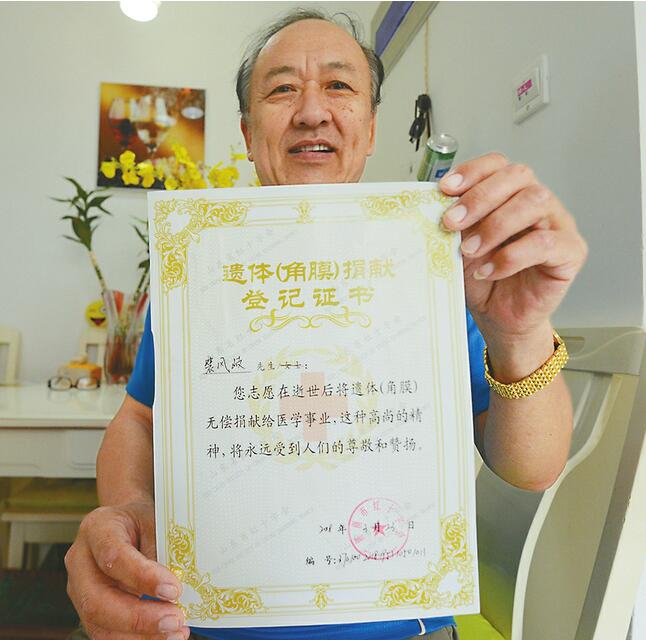 遗体(角膜)捐献
登记证书
先生女士:
您志愿在逝世后将遗体(角膜)
无偿捐献给医学事业,这种高尚的精
神,将永远受到人们的尊敬和赞扬。
年 月 日
编 号: